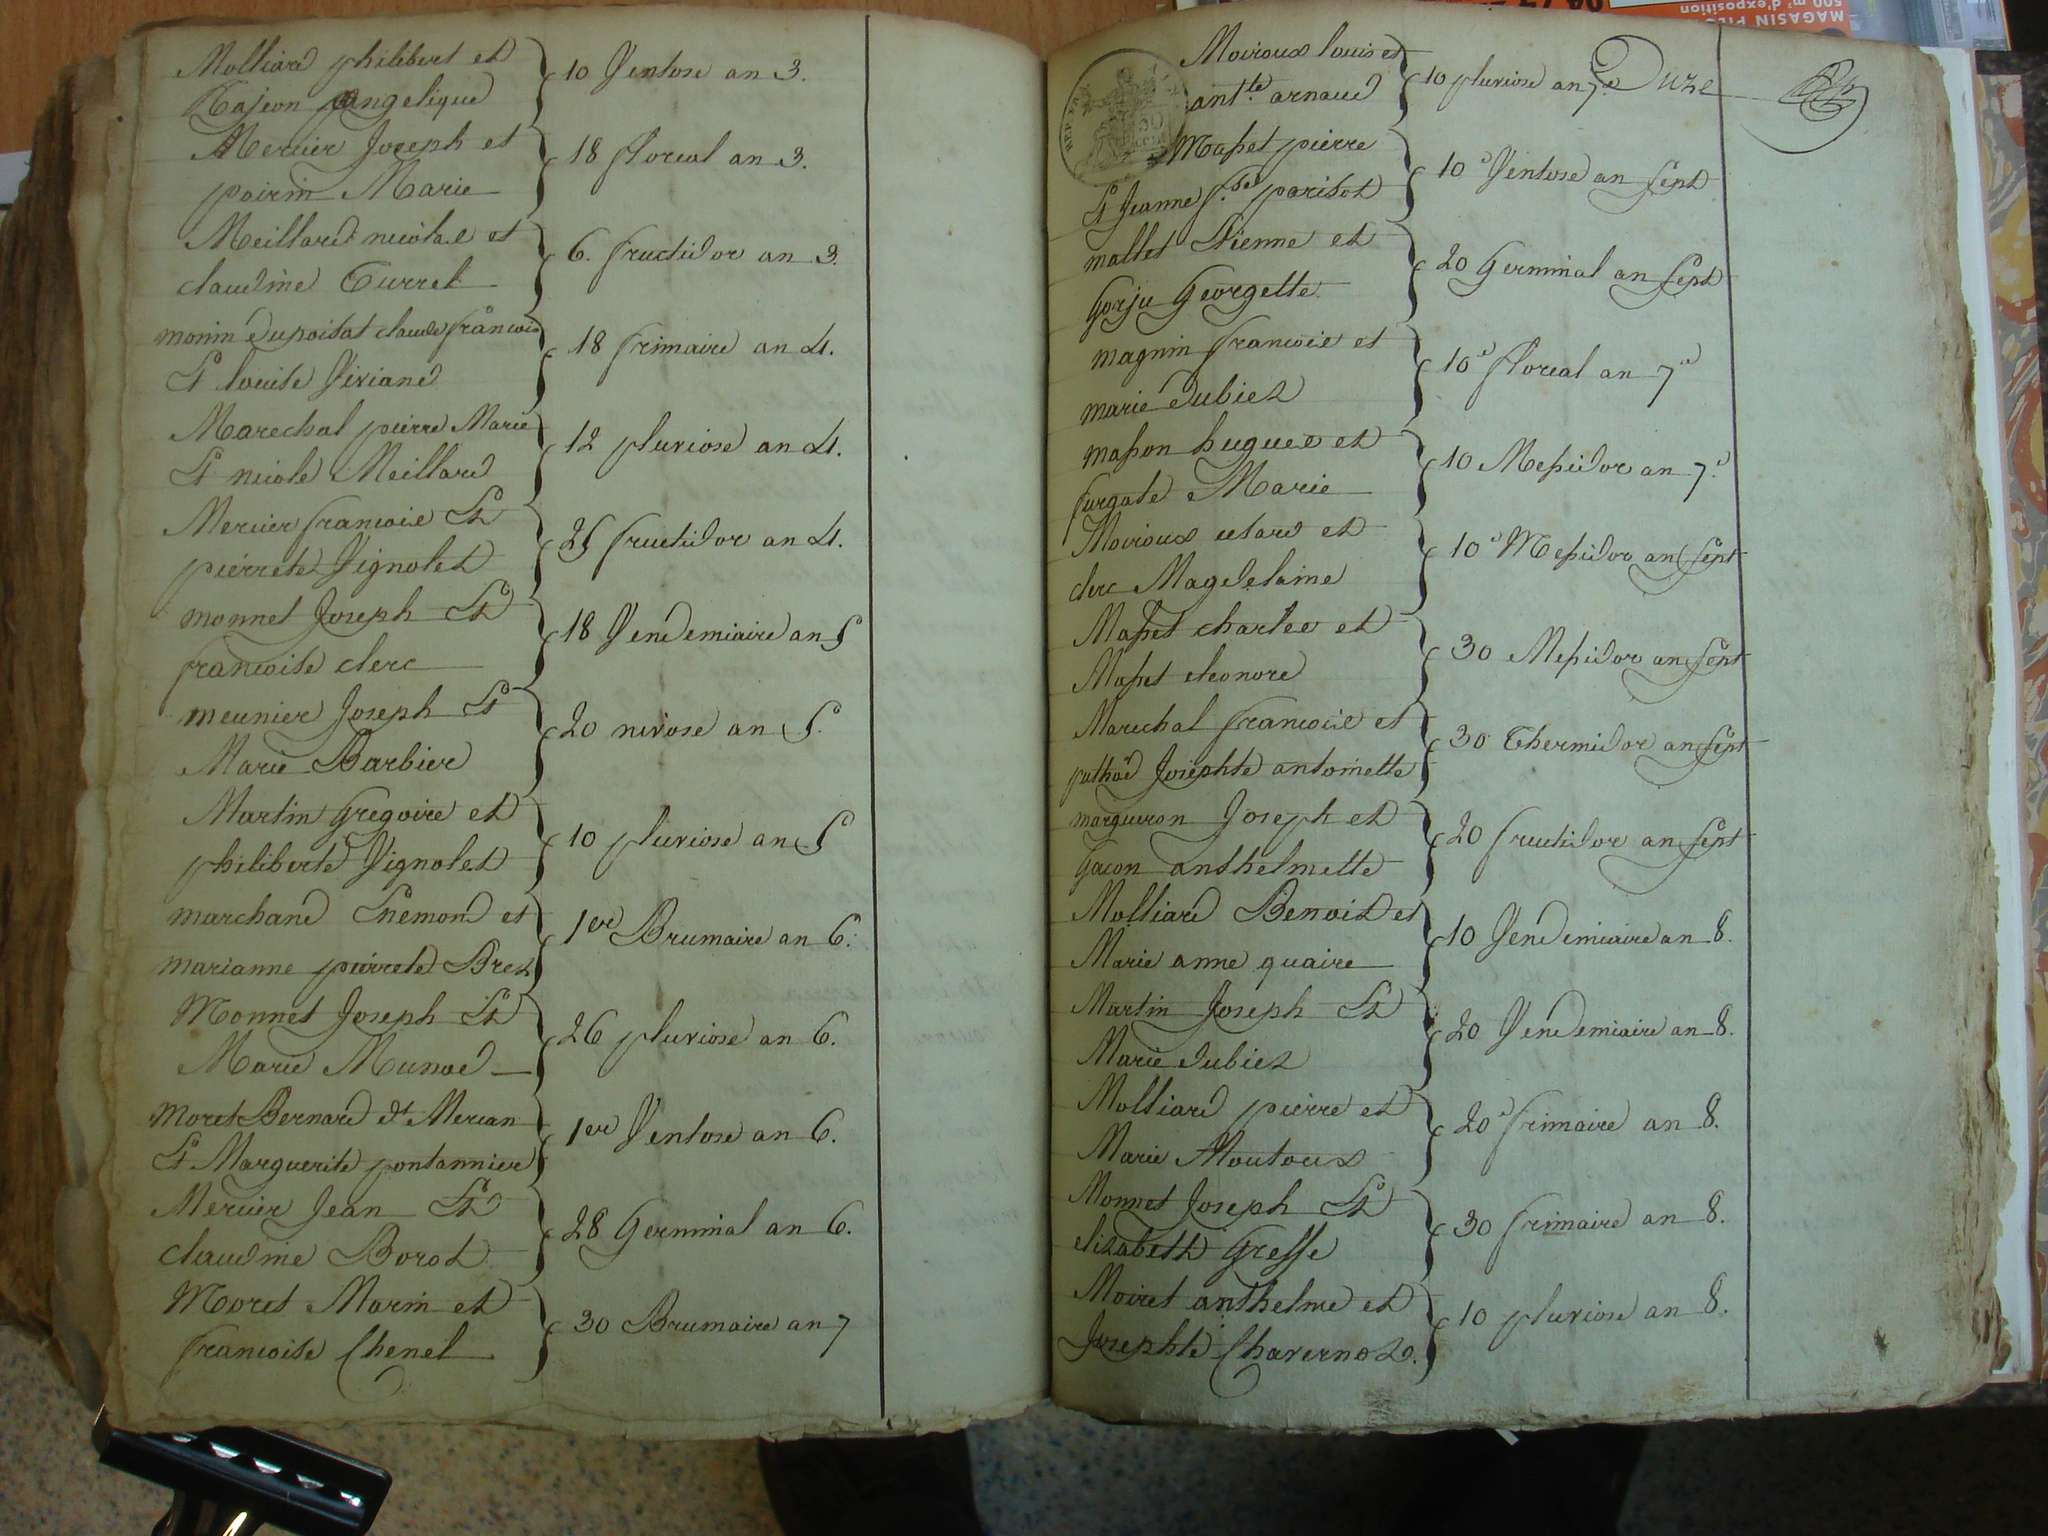 Molliard philibert et
Tajeon angelique
10 Ventose an 3.
Mercier Joseph et
poirin Marie
18 floreal an 3.
Meillard nicolas et
claudine Turrel
6. fructidor an 3.
monin dupoisat claude françois
Et louise Viviand
18 frimaire an 4.
Marechal pierre Marie
Et nicole Meillard
12 pluviose an 4.
Mercier francois Et
pierrete Vignolet
25 fructidor an 4.
monnet Joseph Et
francoise clerc
18 Vendemiaire an 5
meunier Joseph Et
Marie Barbier
20 nivose an 5.
Martin Gregoire et
philiberte Vignolet
10 pluviose an 5
marchand Enemond et
marianne pierrete Bret
1er Brumaire an 6.
Monnet Joseph Et
Marie Munod
26 pluviose an 6.
Moret Bernard dt Mercan
Et Marguerite pontannier
1er Ventose an 6.
Mercier Jean Et
claudine Borot
28 Germinal an 6.
Moret Marin et
francoise Chenel
30 Brumaire an 7
Moiroux louis et
antte arnaud
10 pluviose an 7e
Duze
Masset pierre
Et Jeanne fse parisot
10e Ventose an sept
mallet Etienne et
Gorju Georgette
20 Germinal an sept
magnin francois et
marie dubiez
10e floreal an 7e
masson hugues et
furgote Marie
10 Messidor an 7e
Moiroux cetard et
clerc Magdelaine
10e Messidor an sept
Masset charles et
Masset eleonore
30 Messidor an sept
Marechal francois et
puthod Josephte antoinette
30 Thermidor an sept
margueron Joseph et
Gacon anthelmette
20 fructidor an sept
Molliard Benoit et
Marie anne quaire
10 Vendemiaire an 8.
Martin Joseph Et
Marie dubiez
20 Vendemiaire an 8.
Molliard pierre et
Marie Moutoux
20e frimaire an 8.
Monnet Joseph Et
elizabeth Gresse
30 frimaire an 8.
Moiret anthelme et
Josephte Chavernoz.
10 pluviose an 8.